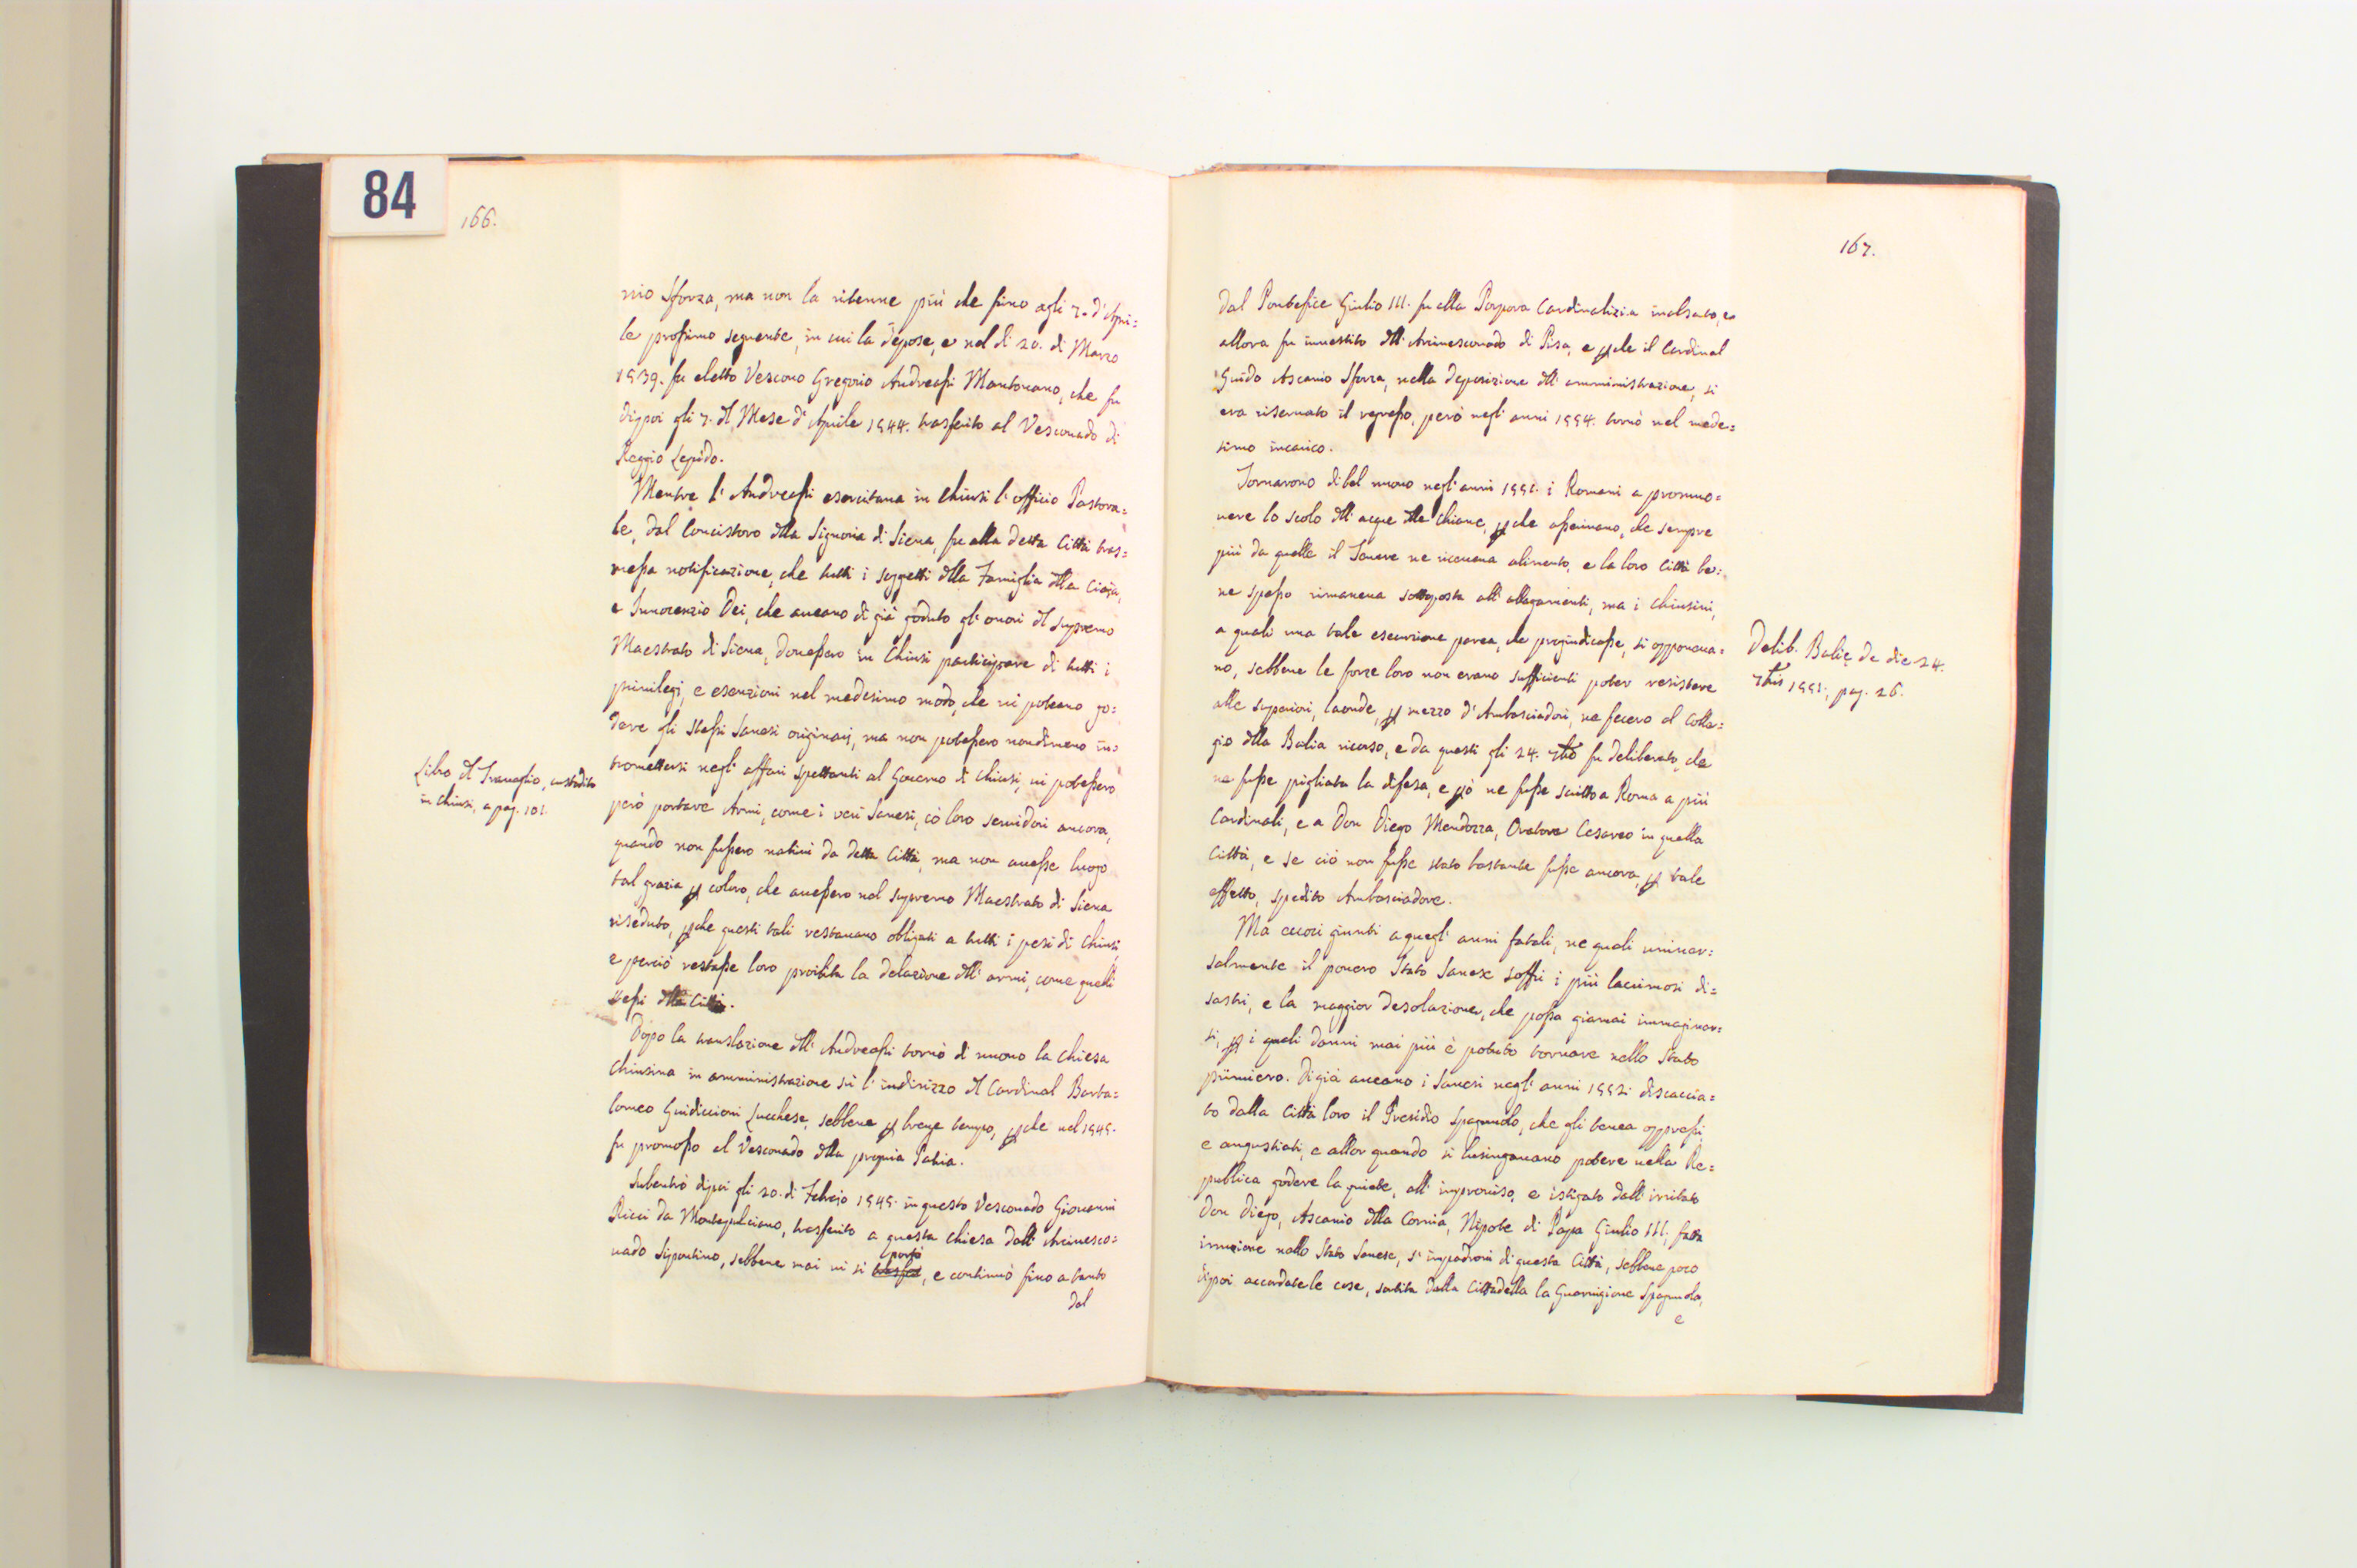 84
166.
nio Sforza, ma non la ritenne più che fino agli 7. d'Apri=
le prossimo seguente, in cui la depose, e nel dì 20. di Marzo
1539. fu eletto Vescovo Gregorio Andreassi Mantouano, che fu
dippoi gli 7. dl Mese d'Aprile 1544. trasferito al Vescouado di
Reggio Lepido.
Mentre l'Andreassi esercitaua in Chiusi l'officio Pastora=
le, dal Concistoro dlla Signoria di Siena, fu alla detta Città tras=
messa notificazione, che tutti i soggetti dlla Famiglia dlla Ciaja,
e Innocenzio Dei, che aueano di già goduto gl'onori dl supremo
Maestrato di Siena, douessero in Chiusi participare di tutti i
priuilegj, e esenzioni nel medesimo modo, che ui poteano go=
dere gli stessi Sanesi originarj, ma non potessero nondimeno in=
tromettersi negl'affari spettanti al Gouerno di Chiusi, ui potessero
Libro dl Trauaglio, custodito
in Chiusi, a pag. 101.
però portare Armi, come i veri Sanesi, cò loro seruidori ancora,
quando non fussero natiui da detta Città, ma non auesse luogo
tal grazia p coloro, che auessero nel supremo Maestrato di Siena
riseduto, pche questi tali restauano obligati a tutti i pesi di Chiusi,
e perciò restasse loro proibita la delazione dll'armi, come quelli
stessi dlla Città.
Dopo la translazione dll'Andreassi tornò di nuouo la Chiesa
Chiusina in amministrazione sù l'indirizzo dl Cardinal Barto=
lomeo Guidiccioni Lucchese, sebbene p breue tempo, pche nel 1545.
fu promosso al Vescouado dlla propria Patria.
Subentrò dipoi gli 20. di Febrajo 1545. in questo Vescouado Giouanni
Ricci da Montepulciano, trasferito a questa Chiesa dall'Arciuesco=
uado Sipontino, sebbene mai ui si portò, e continuò fino a tanto
dal
167.
dal Pontefice Giulio III. fu alla Porpora Cardinalizia inalzato, e
allora fu inuestito dll'Arciuescouado di Pisa, e pche il Cardinal
Guido Ascanio Sforza, nella deposizione dll'amministrazione, si
era riseruato il regresso, però negl'anni 1554. tornò nel mede=
simo incarico.
Tornarono di bel nuouo negl'anni 1551. i Romani a promuo=
uere lo scolo dll'acque dlle Chiane, pche asseriuano, che sempre
più da quelle il Teuere ne riceueua alimento, e la loro Città be=
ne spesso rimaneua sottoposta all'allagamenti, ma i Chiusini,
a quali una tale escursione parea, che pregiudicasse, si opponeua=
no, sebbene le forze loro non erano sufficienti poter resistere
Delib. Balię de die 24.
7bris 1551., pag. 26.
alle superiori, laonde, p mezzo d'Ambasciadori, ne fecero al Colle=
gio dlla Balia ricorso, e da questi gli 24. 7bre fu deliberato, che
ne fusse pigliata la difesa, e pciò ne fusse scritto a Roma a più
Cardinali, e a Don Diego Mendozza, Oratore Cesareo in quella
Città, e se ciò non fusse stato bastante fusse ancora, p tale
effetto, spedito Ambasciadore.
Ma eccoci giunti a quegl'anni fatali, ne quali uniuer=
salmente il pouero Stato Sanese soffrì i più lacrimosi di=
sastri, e la maggior desolazione, che possa giamai immaginar=
si, p i quali danni mai più è potuto tornare nello stato
primiero. Di già aueano i Sanesi negl'anni 1552. discaccia=
to dalla Città loro il Presidio Spagnuolo, che gli tenea oppressi,
e angustiati, e allor quando si lusingauano potere nella Re=
publica godere la quiete, all'improuiso, e istigato dall'irritato
Don Diego, Ascanio dlla Cornia, Nipote di Papa Giulio III, fatta
irruzione nello Stato Sanese, s'impadronì di questa Città, sebbene poco
dippoi accordate le cose, sortita dalla Cittadella la Guarnigione Spagnuola,
e